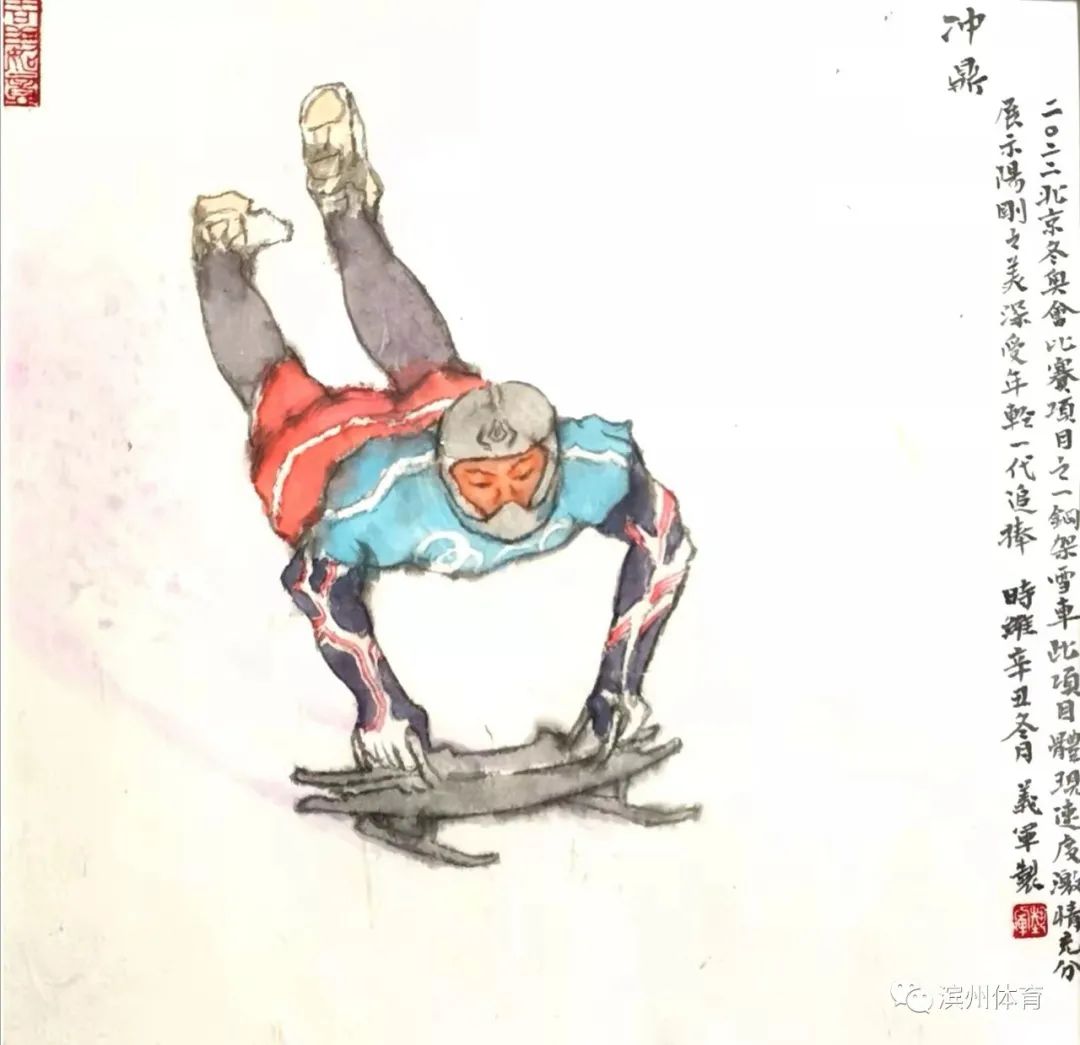 冲鼎
二〇二二北京冬奥會比賽項目之一鋼架雪車此項目體現速度激情充分
展示陽剛之美深受年輕一代追捧 時維辛丑冬月 義軍製
滨州体育